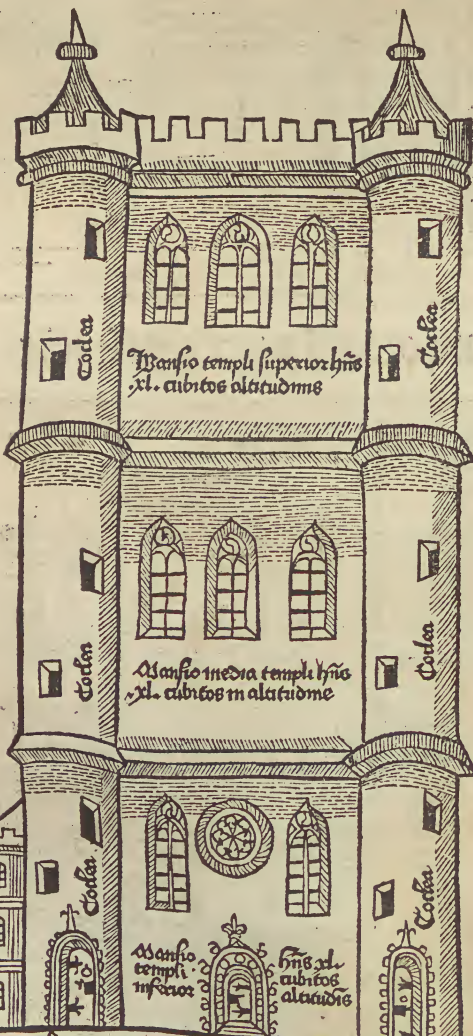 Coclea
Coclea
Mansio templi superior hñs
.xl. cubitos altitudinis
Coclea
Coclea
Mansio media templi hñs
.xl. cubitos in altitudine
Coclea
Coclea
Mansio
templi
inferior
hñs xl.
cubitos
altitudĩs